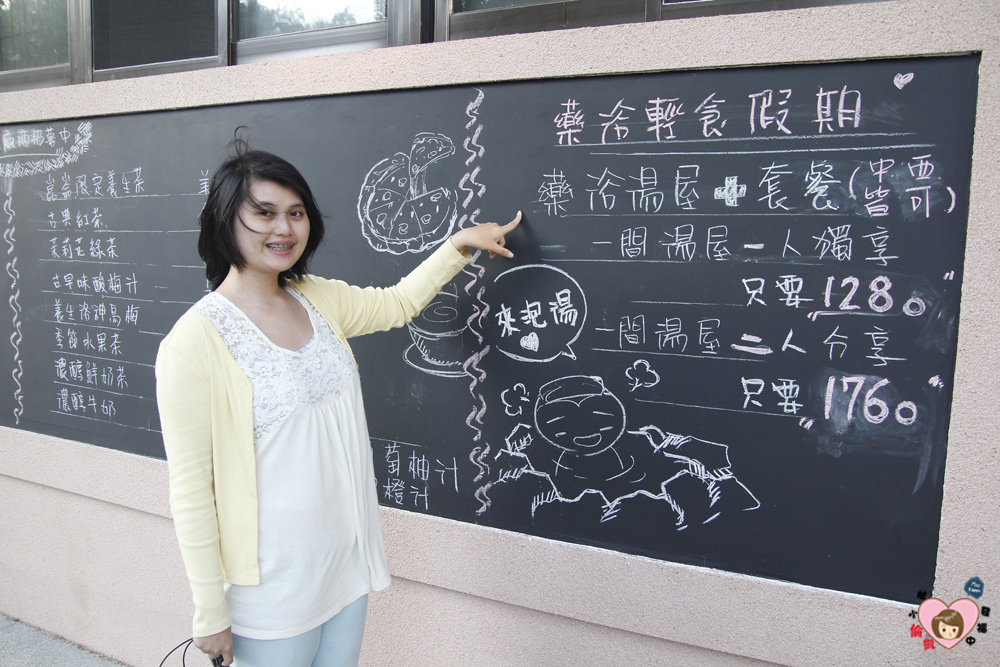 藥浴輕食假期
藥浴湯屋+套餐(中西皆可)
一間湯屋一人獨享
只要128。
一間湯屋二人分享
只要176。
來泡湯
崑崙限定養生茶
古典紅茶
茉莉花綠茶
古早味酸梅汁
養生洛神烏梅
季節水果茶
濃醇鮮奶茶
濃醇牛奶
葡柚汁
橙汁